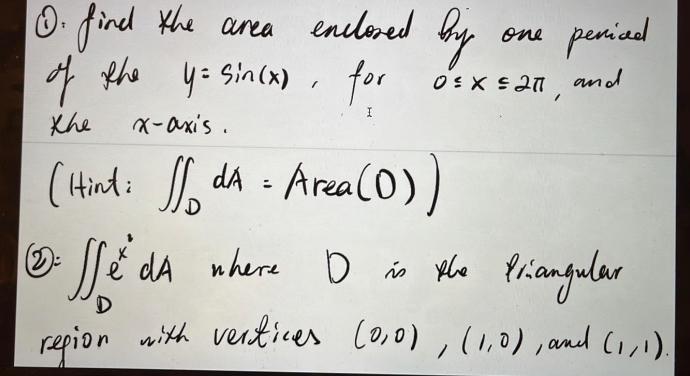 ①. find the area enclosed by one period
of the y = sin(x), for 0 ≤ x ≤ 2π, and
the x-axis.
(Hint: ∬_D dA = Area(D))
②: ∬_D e^x² dA where D is the triangular
region with vertices (0,0), (1,0), and (1,1).